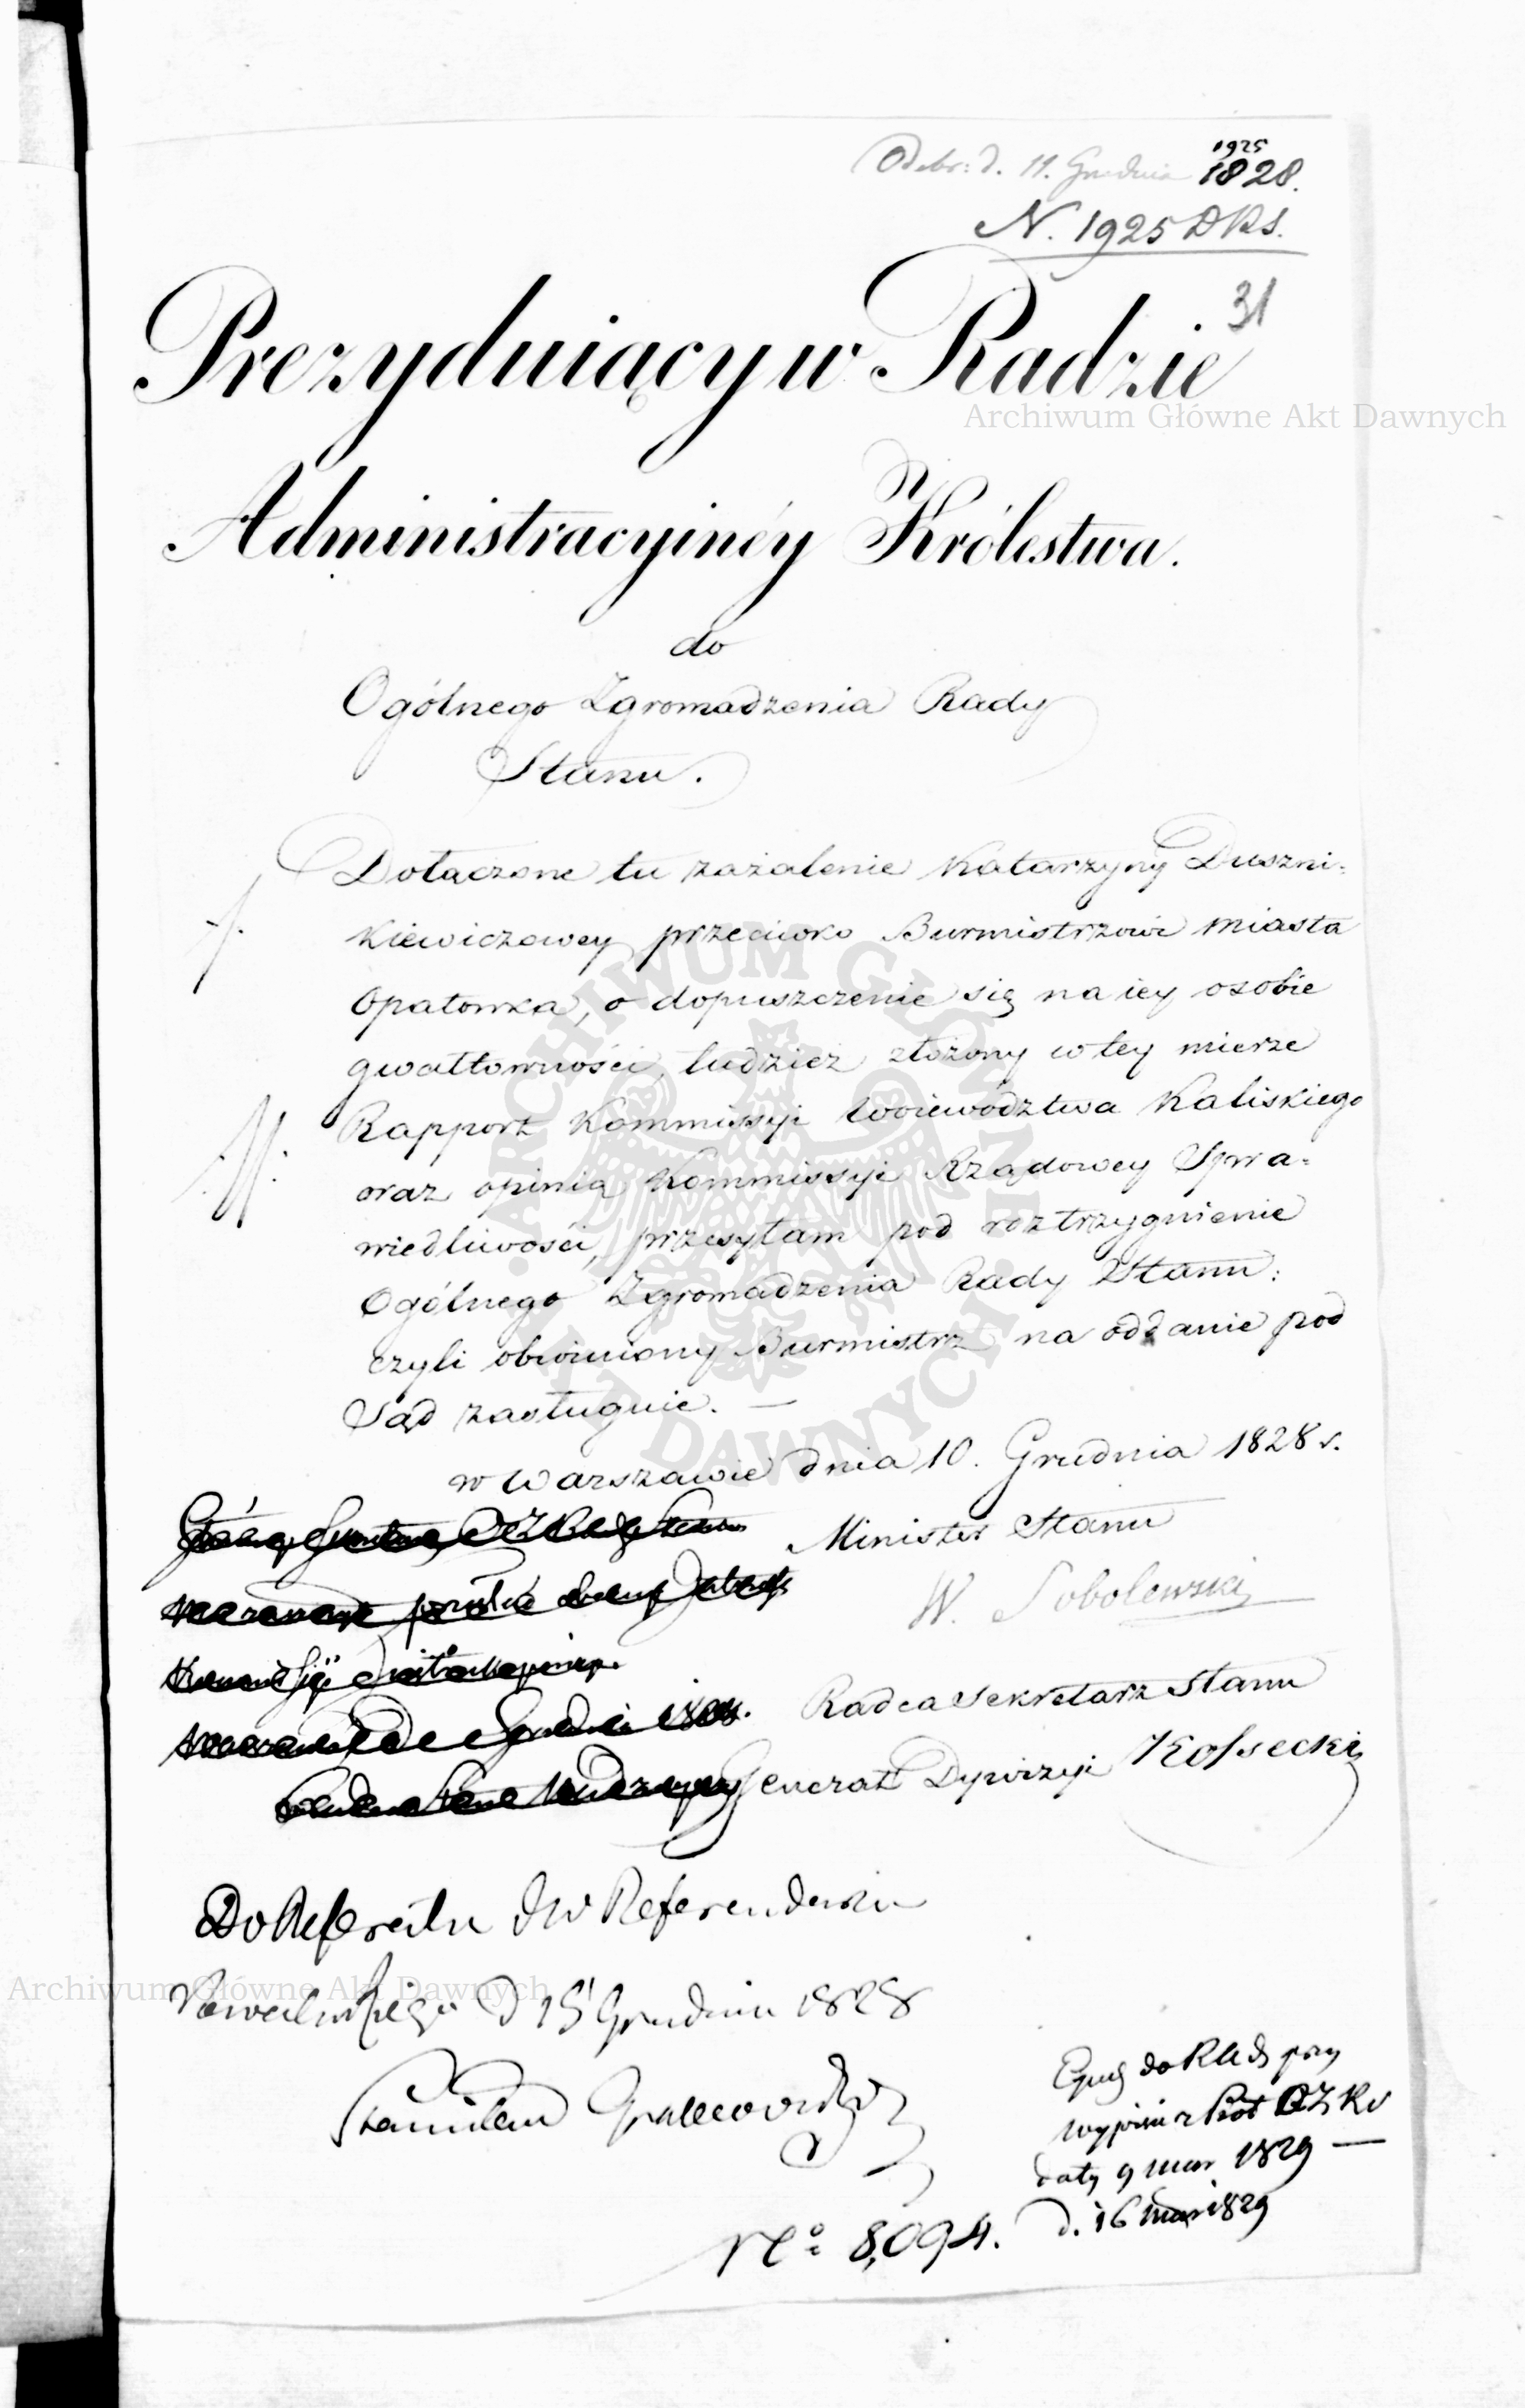 Odebr: d. 11. Grudnia 1828.
1925
N. 1925 DRS.
31
Prezyduiący w Radzie
Archiwum Główne Akt Dawnych
Administracyinéy Królestwa.
do
Ogólnego Zgromadzenia Rady
Stanu.
Dołączone tu zażalenie Katarzyny Duszni-
kiewiczowey przeciwko Burmistrzowi miasta
Opatowka, o dopuszczenie się na iey osobie
gwałtowności, tudzież złożony w tey mierze
Rapport Kommissyi Woiewództwa Kaliskiego
oraz opinią Kommissyi Rządowey Spra-
wiedliwości, przesyłam pod roztrzygnienie
Ogólnego Zgromadzenia Rady Stanu:
czyli obwiniony Burmistrz na oddanie pod
Sąd zasługuie. —
w Warszawie dnia 10. Grudnia 1828 r.
Minister Stanu
W. Sobolewski
Radca Sekretarz Stanu
Generał Dywizyi Kossecki
Do Referatu JW Referendarza
d 15 Grudnia 1828
Archiwum Główne Akt Dawnych
Stanisław Grabowski
do przy
wypisie z Prot OZRS
daty 9 mar 1829 —
d. 16 mar 1829
No 8,094.
ARCHIWUM GŁÓWNE AKT DAWNYCH